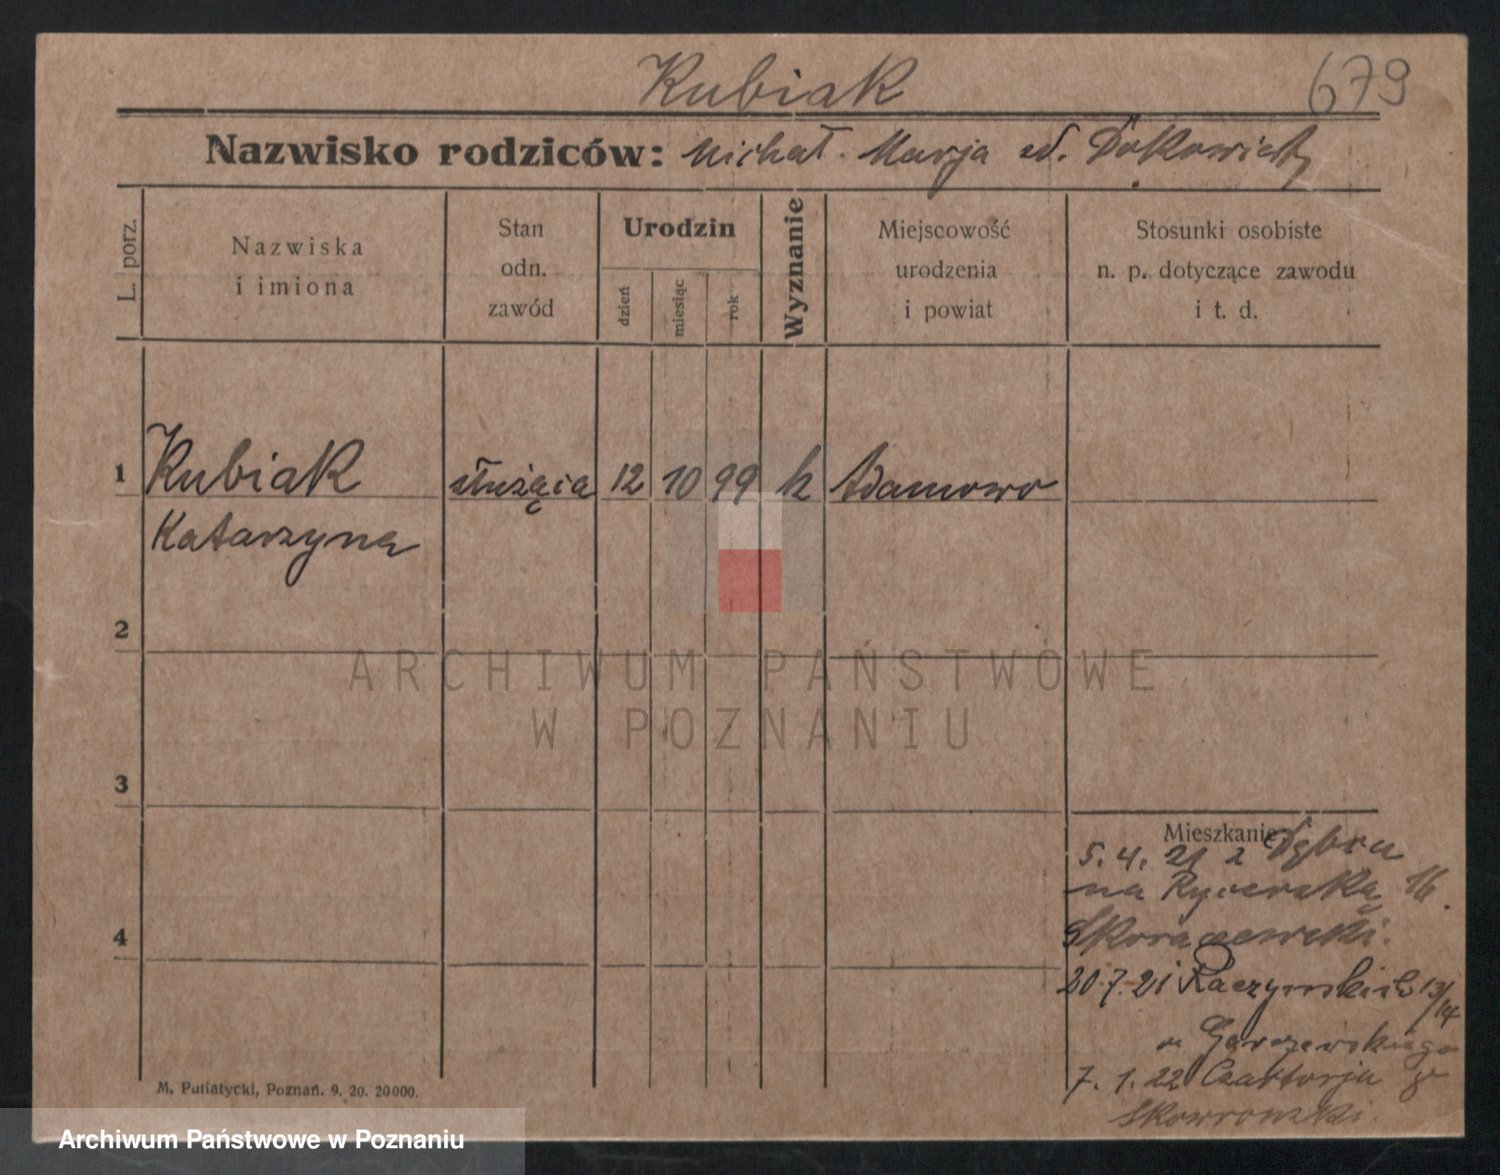 Kubiak
679
Nazwisko rodziców: Michał. Marja
L. porz.
Nazwiska
i imiona
Stan
odn.
zawód
Urodzin
dzień
miesiąc
rok
Wyznanie
Miejscowość
urodzenia
i powiat
Stosunki osobiste
n. p. dotyczące zawodu
i t. d.
1 Kubiak służąca 12 10 99 k Adamowo
Katarzyna
2
ARCHIWUM PAŃSTWOWE
W POZNANIU
3
Mieszkanie
5. 4. 21 z
na Rycerską 16.
4
20.7.21 Raczyńskich 13/14
Garczewskiego
7. 1. 22 Czartorja
Skowroński.
M. Putiatycki, Poznań. 9. 20. 20000.
Archiwum Państwowe w Poznaniu